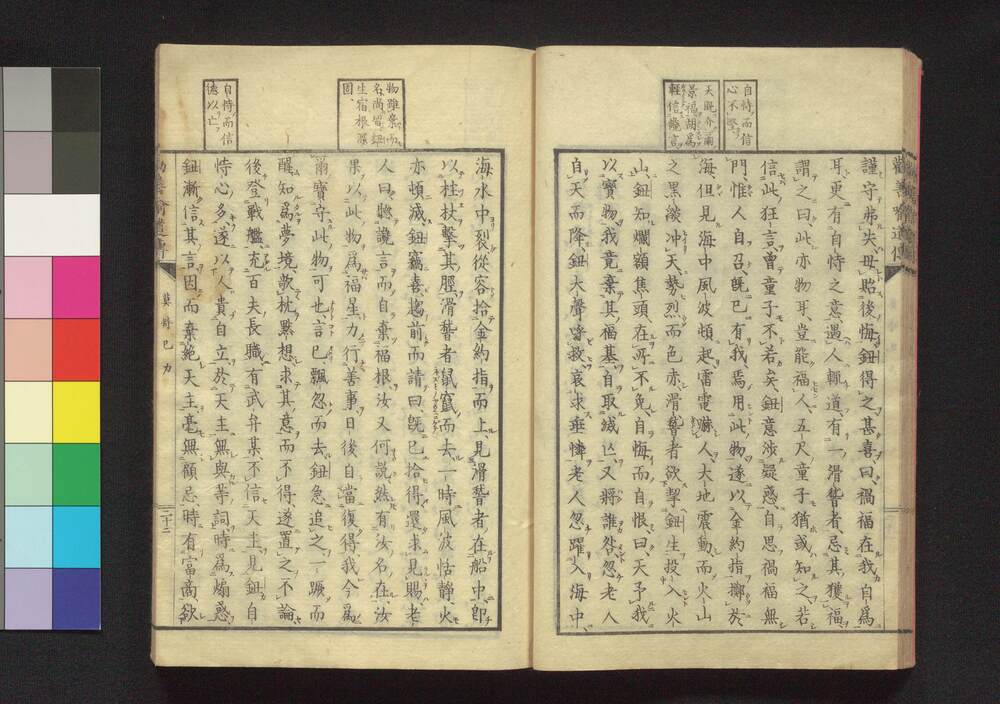 自恃而信
心不堅
天既介爾
景福胡爲
輕信讒言
勸善喻道傳
謹守弗失毋貽後悔鈕得之甚喜曰禍福在我自爲
耳更有自恃之意遇人輒道有一滑聱者忌其獲福
謂之曰此亦物耳豈能福人五尺童子猶或知之若
信此狂言曾童子不若矣鈕意涉疑惑自思禍福無
門惟人自召既已有我焉用此物遂以金約指擲於
海但見海中風波頓起雷電嚇人大地震動而火山
之黑燄冲天勢烈而色赤滑聱者欲挈鈕生投入火
山鈕知爛額焦頭在所不免自悔而自恨曰天予我
以寳物我竟棄其福基自取滅亡又將誰咎忽老人
自天而降鈕大聲疾救哀求垂憐老人忽躍入海中
物雖棄而
名尚留鈕
生宿根深
固
自恃而信
德以亡
海水中裂從容拾金約指而上見滑聱者在船中卽
以柱杖擊其脛滑聱者鼠竄而去一時風波恬靜火
亦頓滅鈕竊喜趨前而請曰既已拾得還求見賜老
人曰聽讒言而自棄福根汝又何説然有汝名在汝
果以此物爲福星力行善事日後自當復得我今爲
爾寳守此物可也言已飄忽而去鈕急追之一蹶而
醒知爲夢境欹枕黙想求其意而不得遂置之不論
後登戰艦充百夫長職有武弁某不信天主見鈕自
恃心多遂以人貴自立於天主無與等詞時爲煽惑
鈕漸信其言因而棄絕天主毫無顧忌時有富商欽
莫恃己力
二十二